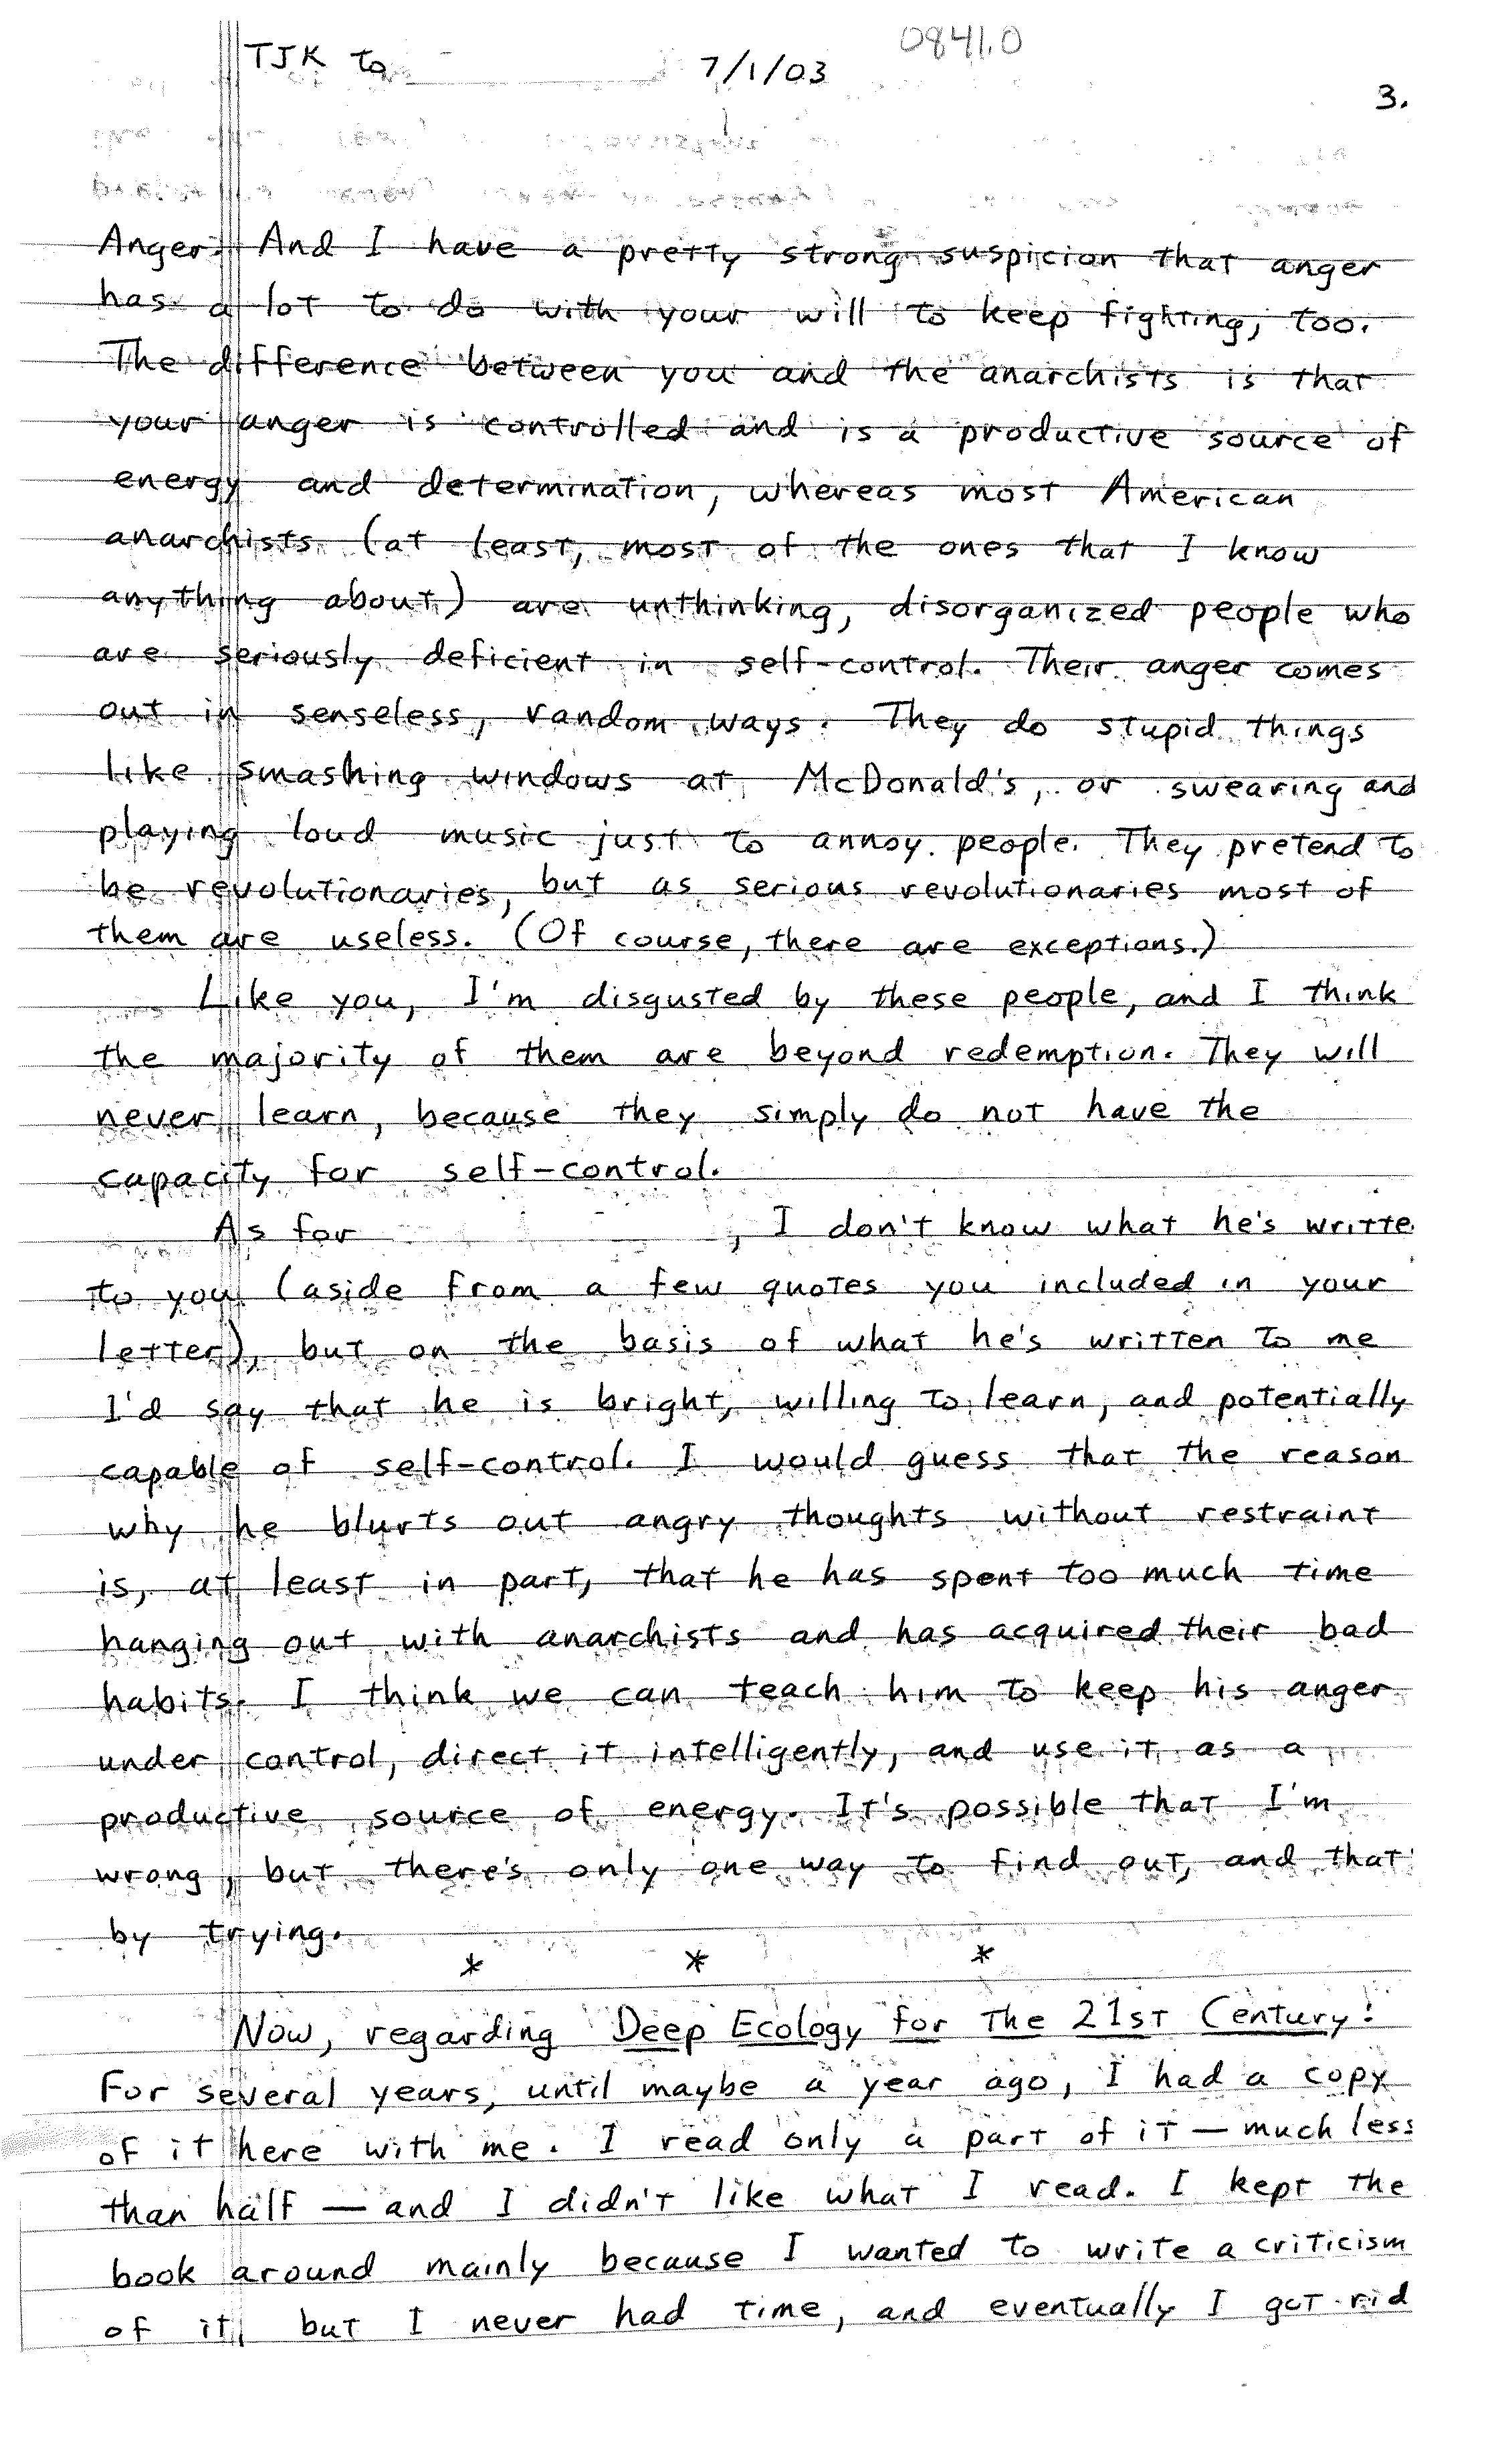 TJK to 7/1/03 0841.0
3.
Anger. And I have a pretty strong suspicion that anger
has a lot to do with your will to keep fighting, too.
The difference between you and the anarchists is that
your anger is controlled and is a productive source of
energy and determination, whereas most American
anarchists (at least, most of the ones that I know
anything about) are unthinking, disorganized people who
are seriously deficient in self-control. Their anger comes
out in senseless, random ways. They do stupid things
like smashing windows at McDonald's, or swearing and
playing loud music just to annoy people. They pretend to
be revolutionaries, but as serious revolutionaries most of
them are useless. (Of course, there are exceptions.)
Like you, I'm disgusted by these people, and I think
the majority of them are beyond redemption. They will
never learn, because they simply do not have the
capacity for self-control.
As for , I don't know what he's writte
to you (aside from a few quotes you included in your
letter), but on the basis of what he's written to me
I'd say that he is bright, willing to learn, and potentially
capable of self-control. I would guess that the reason
why he blurts out angry thoughts without restraint
is, at least in part, that he has spent too much time
hanging out with anarchists and has acquired their bad
habits. I think we can teach him to keep his anger
under control, direct it intelligently, and use it as a
productive source of energy. It's possible that I'm
wrong, but there's only one way to find out, and that
by trying.
* * *
Now, regarding Deep Ecology for the 21st Century:
For several years, until maybe a year ago, I had a copy
of it here with me. I read only a part of it — much less
than half — and I didn't like what I read. I kept the
book around mainly because I wanted to write a criticism
of it, but I never had time, and eventually I got rid